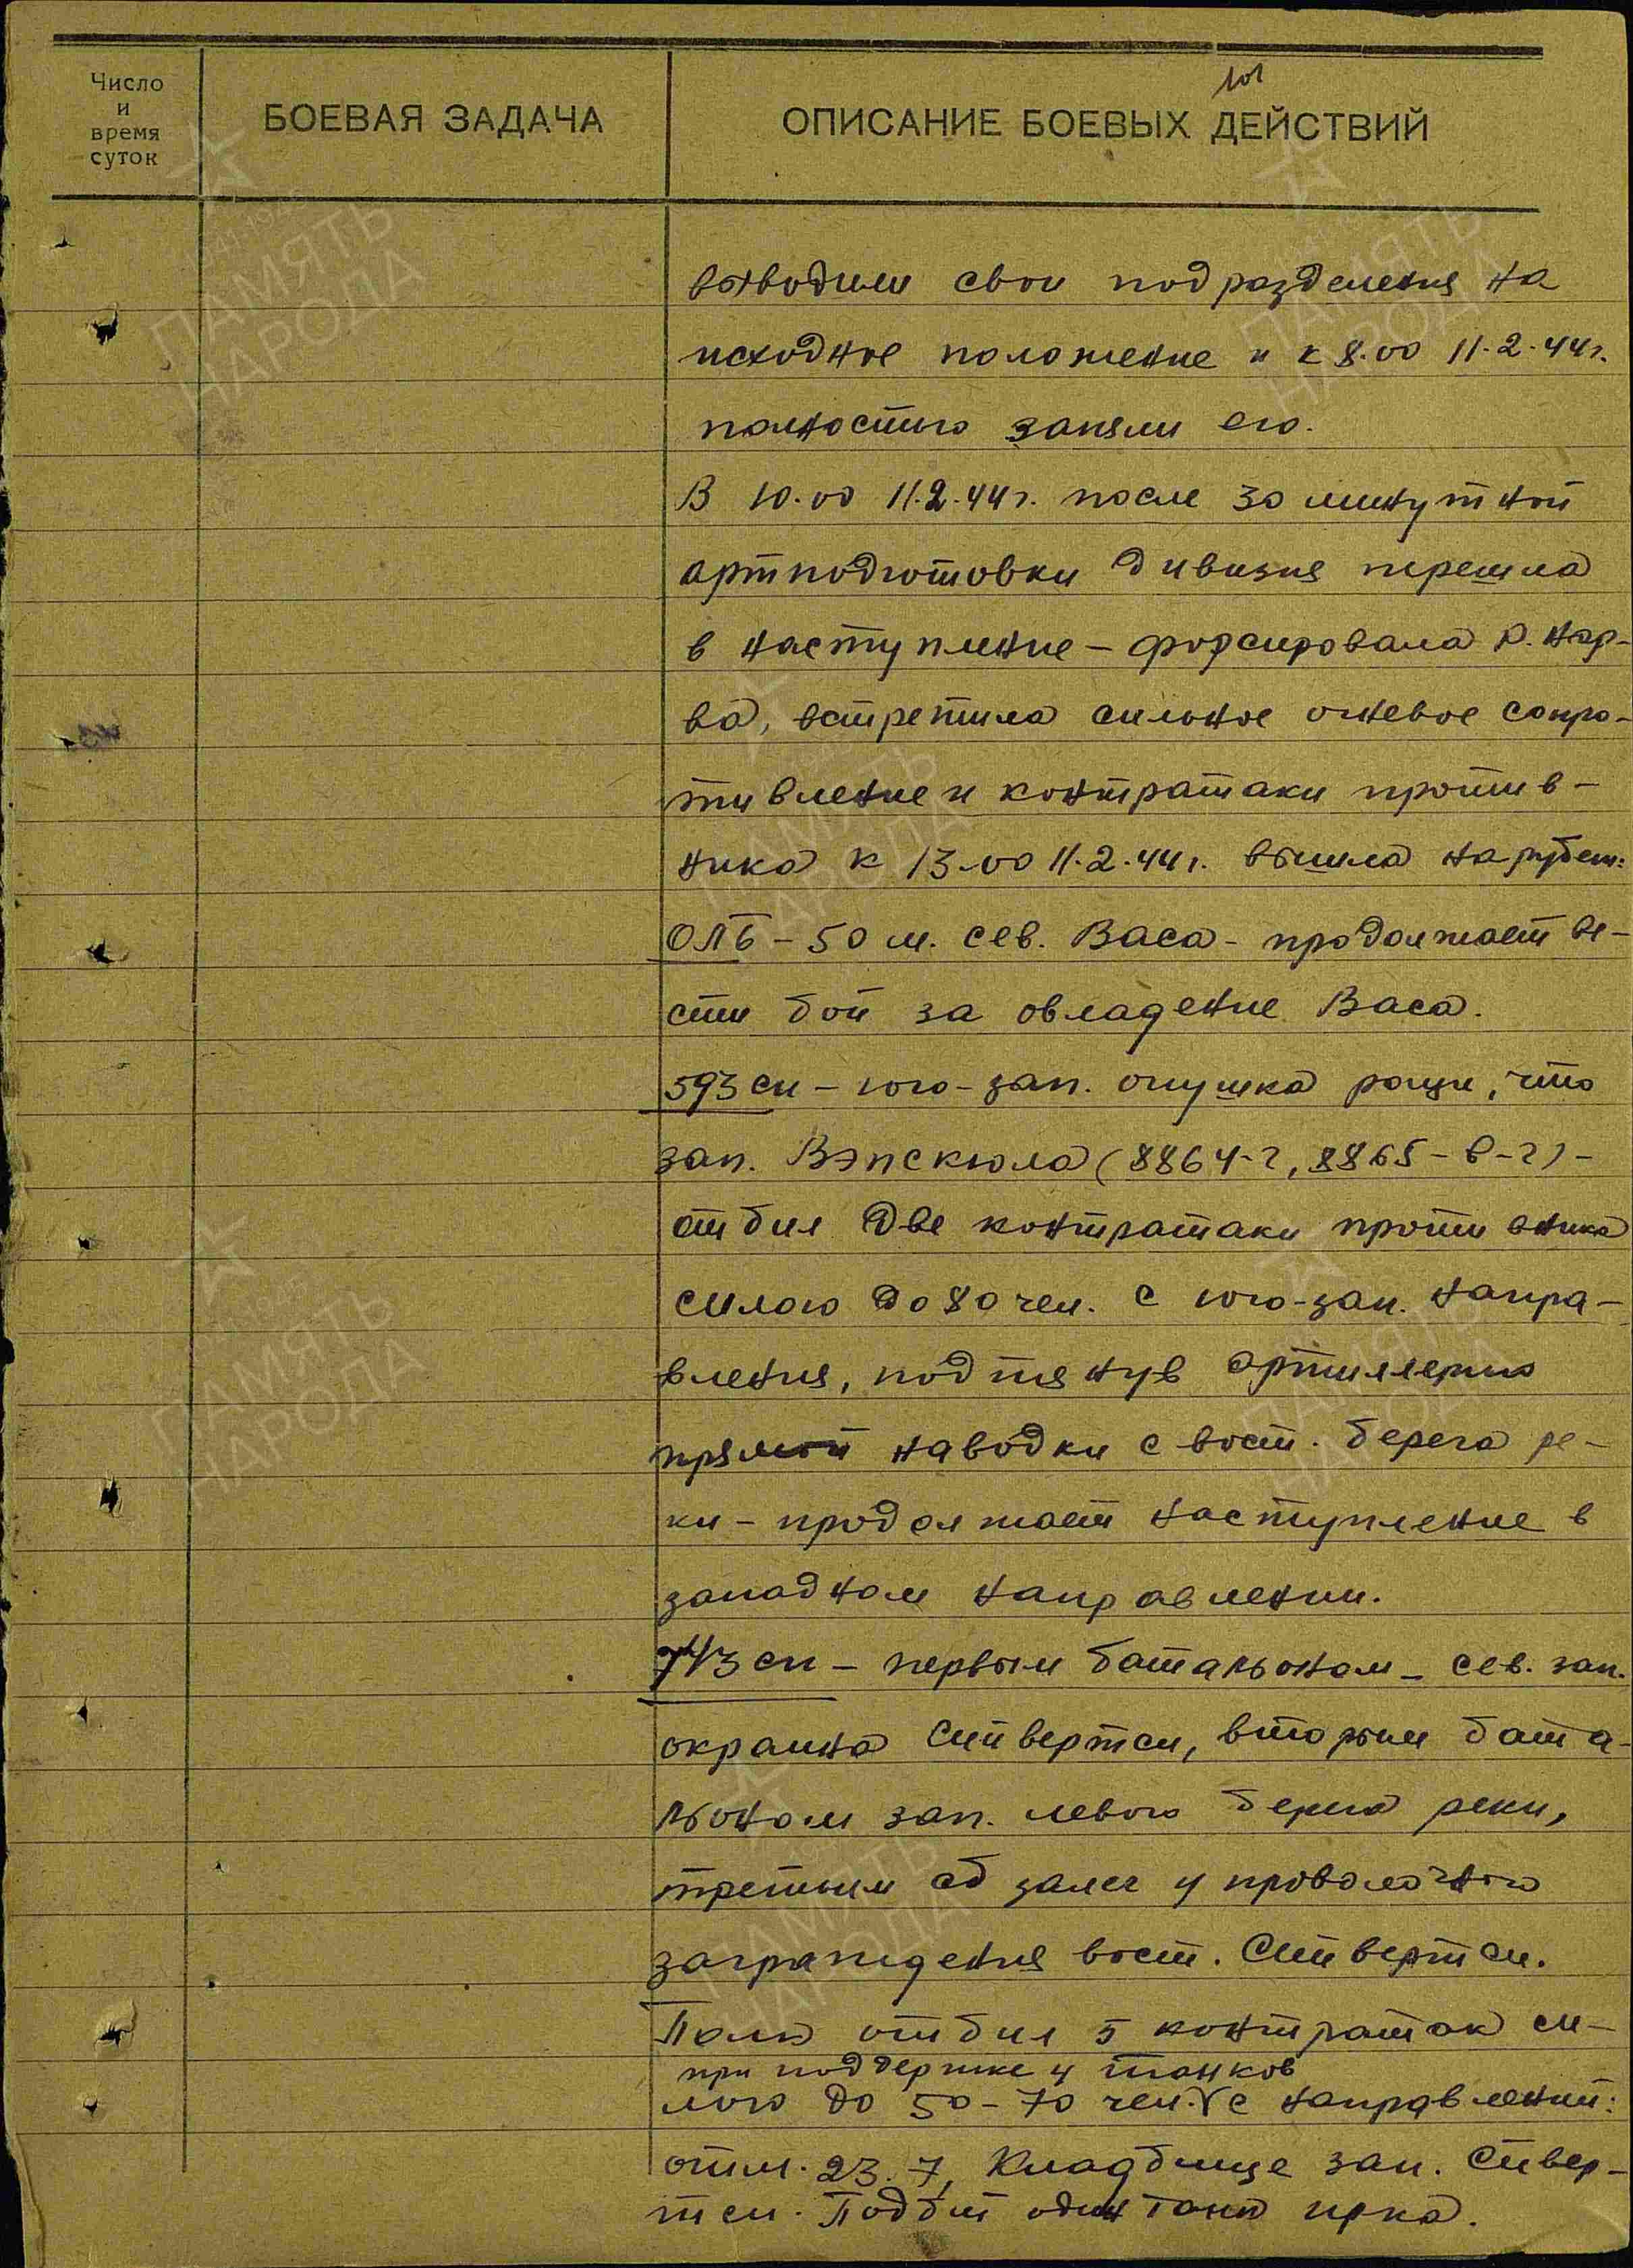 101
Число
и
время
суток
БОЕВАЯ ЗАДАЧА
ОПИСАНИЕ БОЕВЫХ ДЕЙСТВИЙ
выводили свои подразделения на
исходное положение и к 8.00 11.2.44г.
полностью заняли его.
В 10.00 11.2.44г. после 30 минутной
артподготовки дивизия перешла
в наступление – форсировала р. Нар-
ва, встретила сильное огневое сопро-
тивление и контратаки против-
ника к 13.00 11.2.44г. вышла на рубеж:
ОЛБ – 50 м. сев. Васа – продолжает ве-
сти бой за овладение Васа.
593 сп – юго-зап. опушка рощи, что
зап. Вэпскюла (8864-г, 8865-в-г) –
отбил две контратаки противника
силою до 80 чел. с юго-зап. напра-
вления, подтянув артиллерию
прямой наводки с вост. берега ре-
ки – продолжает наступление в
западном направлении.
743 сп – первым батальоном – сев. зап.
окраина Сиивертси, вторым бата-
льоном зап. левого берега реки,
третьим сб залег у проволочного
заграждения вост. Сиивертси.
Полк отбил 5 контратак си-
при поддержке 4 танков
лою до 50-70 чел. с направлений:
отм. 23.7, Кладбище зап. Сивер-
тси. Подбит один танк пр-ка.
ПАМЯТЬ
НАРОДА
ПАМЯТЬ
НАРОДА
ПАМЯТЬ
НАРОДА
ПАМЯТЬ
НАРОДА
ПАМЯТЬ
НАРОДА
ПАМЯТЬ
НАРОДА